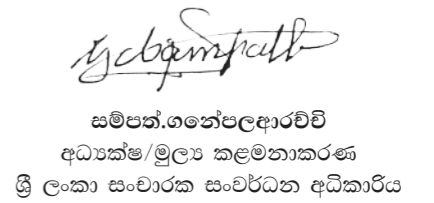 සම්පත්.ගනේපලආරච්චි
අධ්‍යක්ෂ/මුල්‍ය කළමනාකරණ
ශ්‍රී ලංකා සංචාරක සංවර්ධන අධිකාරිය